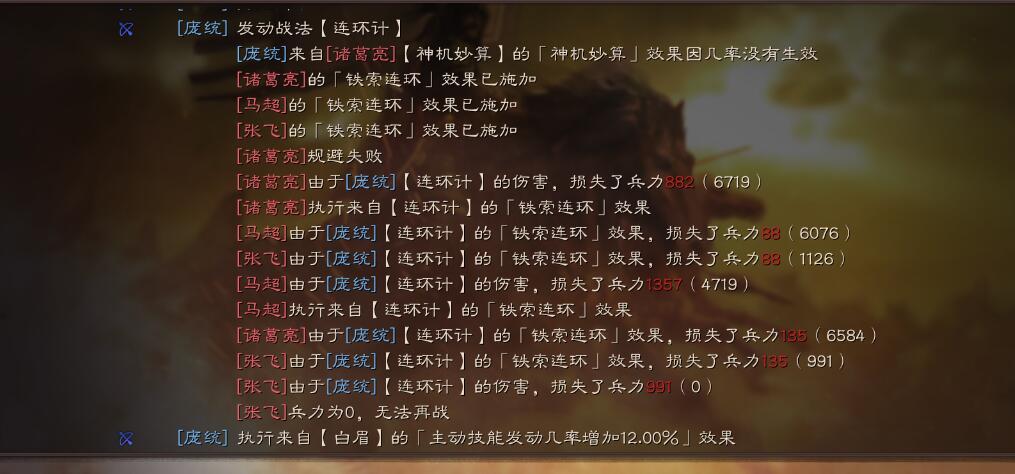 [庞统] 发动战法【连环计】
[庞统]来自[诸葛亮]【神机妙算】的「神机妙算」效果因几率没有生效
[诸葛亮]的「铁索连环」效果已施加
[马超]的「铁索连环」效果已施加
[张飞]的「铁索连环」效果已施加
[诸葛亮]规避失败
[诸葛亮]由于[庞统]【连环计】的伤害，损失了兵力882（6719）
[诸葛亮]执行来自【连环计】的「铁索连环」效果
[马超]由于[庞统]【连环计】的「铁索连环」效果，损失了兵力88（6076）
[张飞]由于[庞统]【连环计】的「铁索连环」效果，损失了兵力88（1126）
[马超]由于[庞统]【连环计】的伤害，损失了兵力1357（4719）
[马超]执行来自【连环计】的「铁索连环」效果
[诸葛亮]由于[庞统]【连环计】的「铁索连环」效果，损失了兵力135（6584）
[张飞]由于[庞统]【连环计】的「铁索连环」效果，损失了兵力135（991）
[张飞]由于[庞统]【连环计】的伤害，损失了兵力991（0）
[张飞]兵力为0，无法再战
[庞统] 执行来自【白眉】的「主动技能发动几率增加12.00%」效果